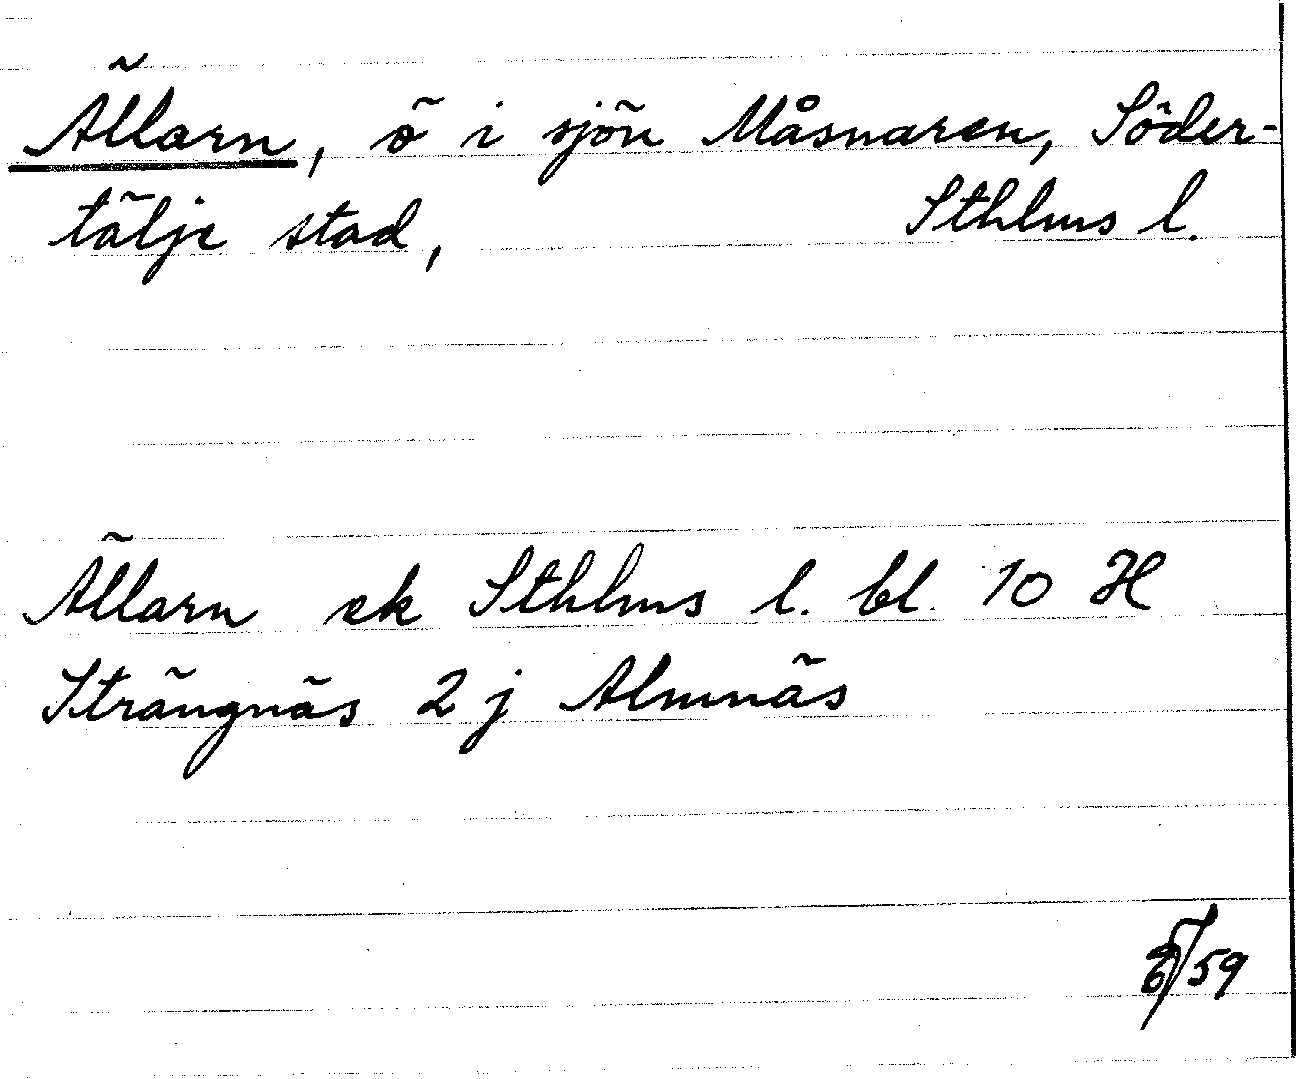 Ällarn, ö i sjön Måsnaren, Söder-
tälje stad, Sthlms l.
Ällarn ek Sthlms l. bl. 10 H
Strängnäs 2 j Almnäs
/59